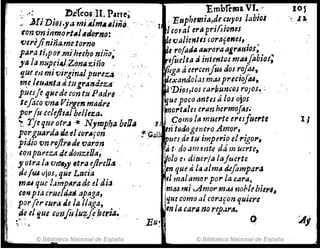 Defeos. II. Parte,
Mi Dios, ya mi alma aliño
con vn inmortal adorno:
verè si niña me torno
para ti, por mi hecho niño,
ya la nupcial Zona ciño
que en mi virginal pureza
me leuanta à tu grandeza
pues se que de contu Padre
te faco vna Virgen madre
por su celestial belleza.
Y se que otra * Nympha bella
por guarda de el coraçon
pidio vn resfiro de varon
con pureza de donzella,
y otra la vna y otra estrella
de sus ojos, que Lucia
mas que lampara de el dia
con pia crueldad apaga,
por ser cura de la llaga,
de el que con su luz se heria.
Embfema VI. 105
Euphemia, de cuyos labios
el coral era prisiones
de valientes coraçones,
de rosada aurora agrauios;
resuelta à intentos mas sabios
llega à cercen sus dos rosas,
dexandolas mas preciosas,
à Dios, los carbuncos rojos,
que poco antes à los ojos
mortales eran hermosas.
Como la muerte eres fuerte
en todo genero Amor,
pues de tu imperio el rigor,
à t do amante dà muerte,
solo es diuersa la suerte
en que à la alma desampara
el mal amor por la cara,
mas mi Amor mas noble hiere,
que como al coraçon quiere
en la cara no repara.
O
© Biblioteca Nacional de España
© Biblioteca Nacional de España